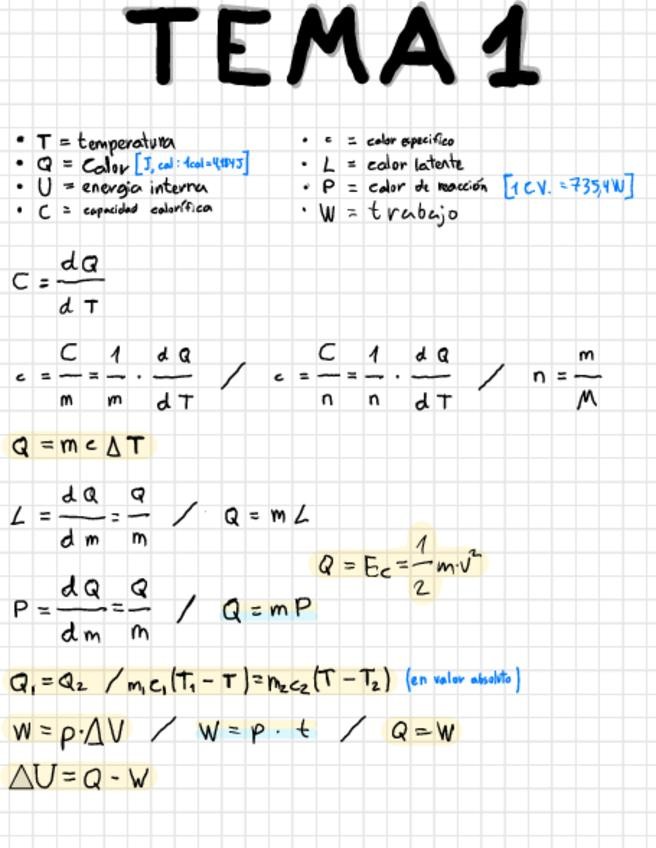 TEMA 1
• T = temperatura
• Q = Calor [J, cal : 1cal = 4,184J]
• U = energia interna
• C = capacidad calorífica
• c = calor especifico
• L = calor latente
• P = calor de reacción [1 C.V. = 735,4W]
• W = trabajo
C = dQ / dT
c = C/m = 1/m · dQ/dT / c = C/n = 1/n · dQ/dT / n = m/M
Q = m c Δ T
L = dQ/dm = Q/m / Q = m L
Q = Ec = 1/2 m·v²
P = dQ/dm = Q/m / Q = m P
Q₁ = Q₂ / m₁c₁(T₁ - T) = m₂c₂(T - T₂) (en valor absoluto)
W = p·ΔV / W = p · t / Q = W
ΔU = Q - W